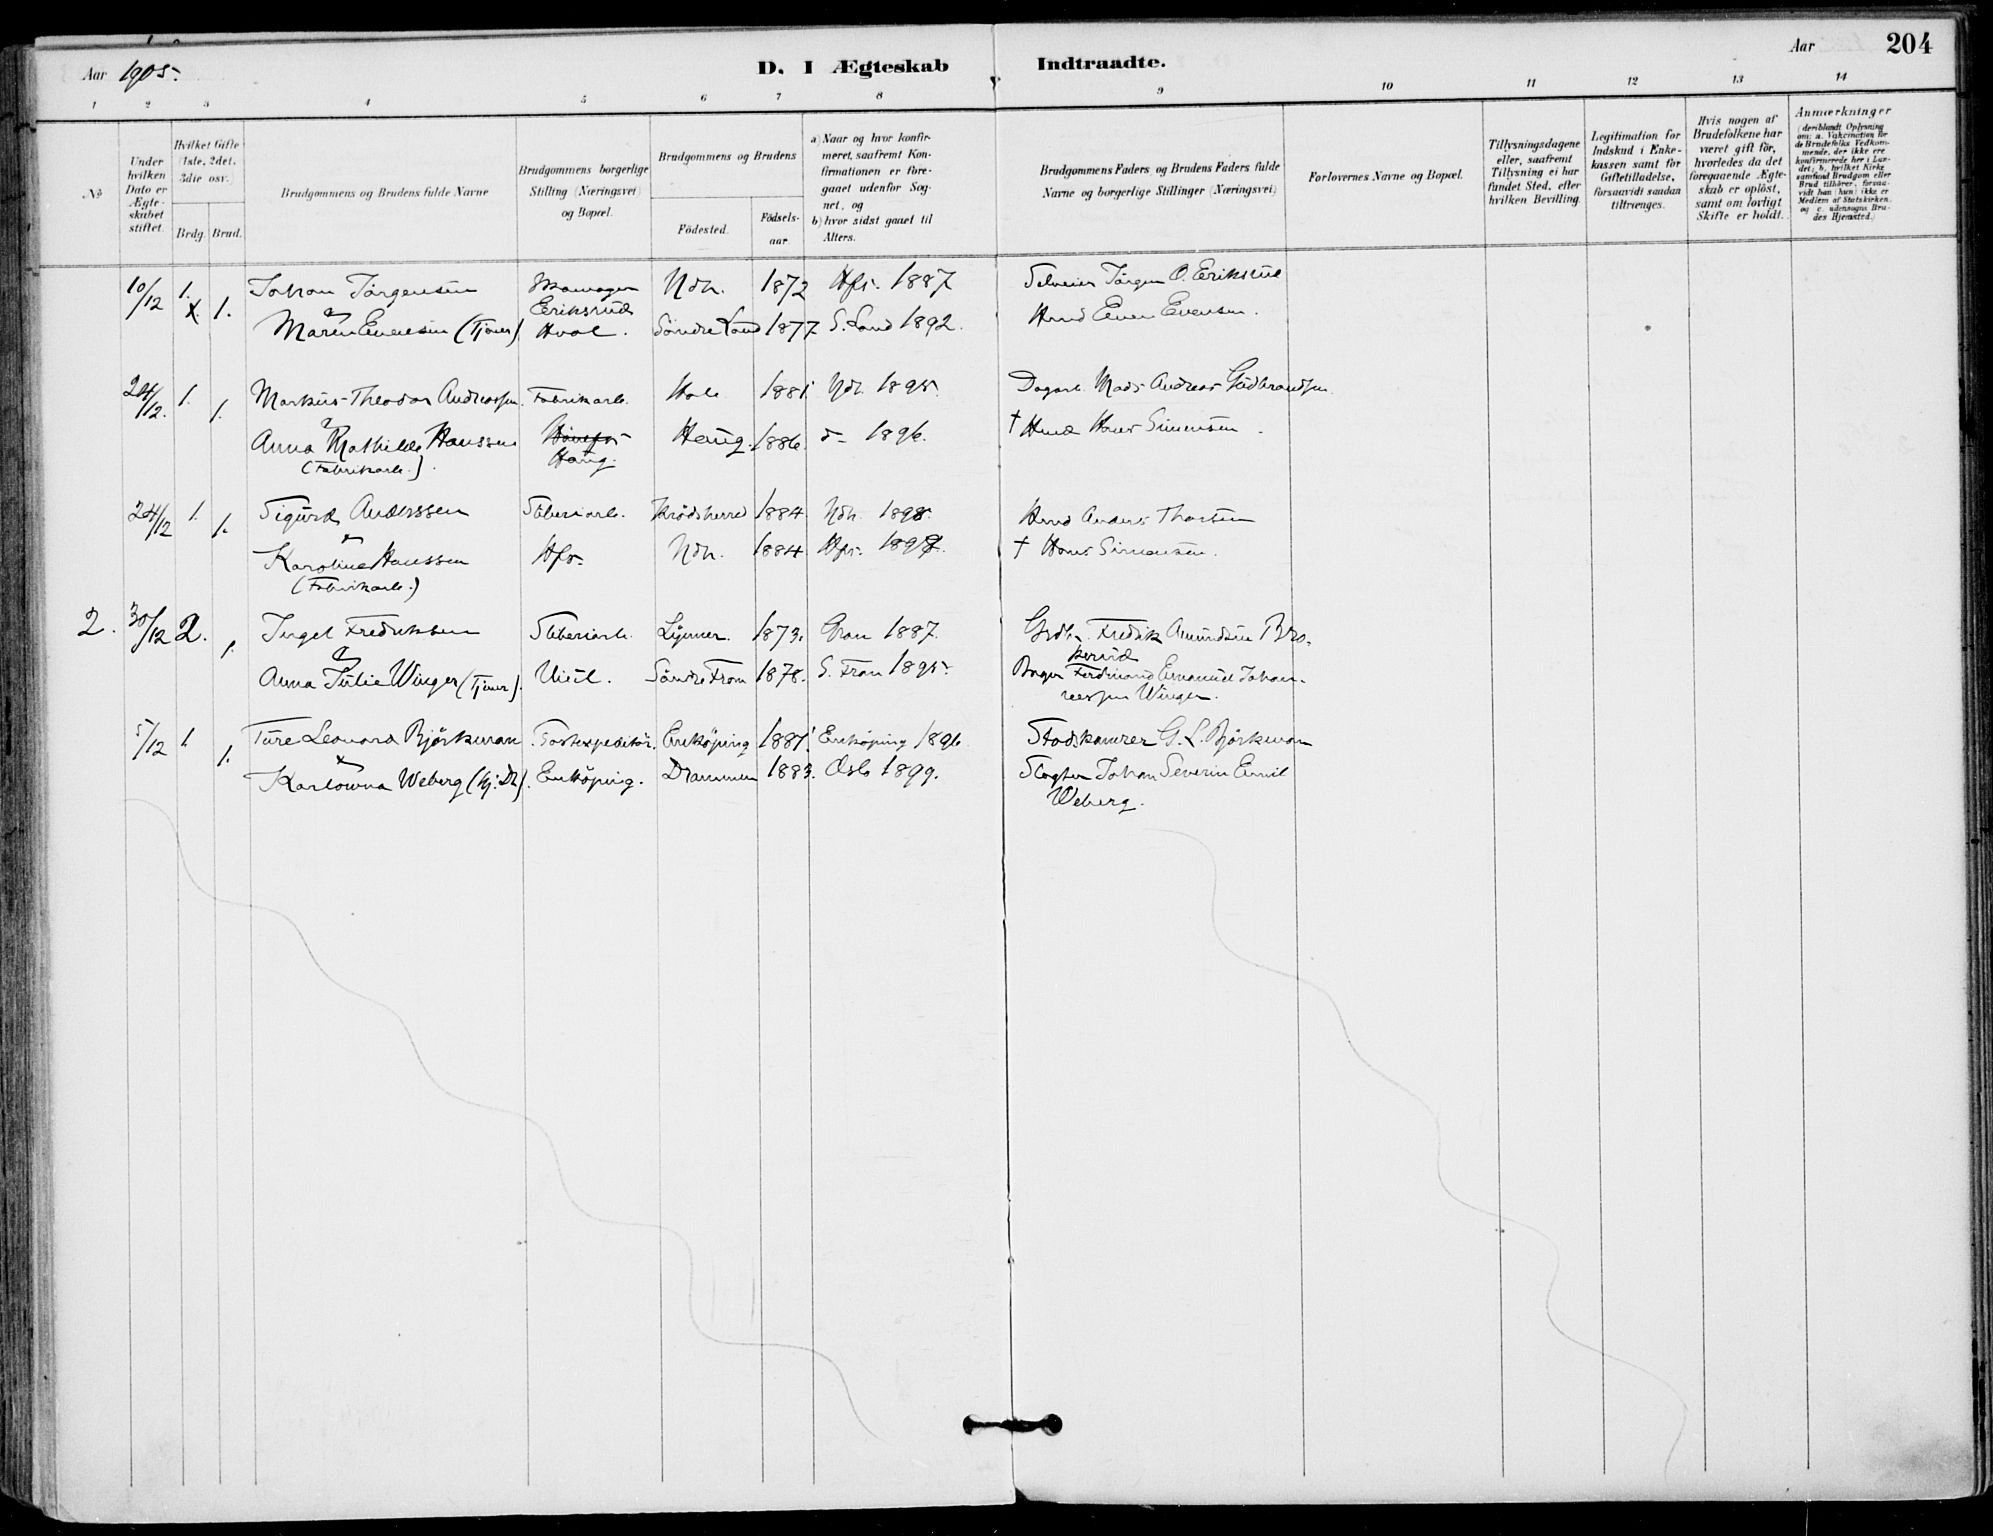 Aar 1905.
D. I Ægteskab Indtraadte.
Aar 204
1 2 3 4 5 6 7 8 9 10 11 12 13 14
No
Under hvilken Dato er Ægteskabet stiftet.
Hvilket Gifte (1ste, 2det, 3die osv.)
Brdg. Brud.
Brudgommens og Brudens fulde Navne
Brudgommens borgerlige Stilling (Næringsvei) og Bopæl.
Brudgommens og Brudens
Födested. Födselsaar
a) Naar og hvor konfirmeret, saafremt Konfirmationen er foregaaet udenfor Sognet, og
b) hvor sidst gaaet til Alters.
Brudgommens Faders og Brudens Faders fulde Navne og borgerlige Stillinger (Næringsvei)
Forlovernes Navne og Bopæl.
Tillysningsdagene eller, saafremt Tillysning ei har fundet Sted, efter hvilken Bevilling.
Legitimation for Indskud i Enkekassen samt for Giftetilladelse, forsaavidt saadan tiltrænges.
Hvis nogen af Brudefolkene har været gift för, hvorledes da det foregaaende Ægteskab er oplöst, samt om lovligt Skifte er holdt.
Anmærkninger (deriblandt Oplysning om: a. Vakcination for de Brudefolks Vedkommende, der ikke ere konfirmerede her i Landet; b. hvilket Kirkesamfund Brudgom eller Brud tilhörer, forsaavidt han (hun) ikke er Medlem af Statskirken, og c. udensogns Brudes Hjemsted.)
10/12 1. 1. Johan Jörgensen Skomager Ndh. 1872 Hfs. 1887 Selveier Jörgen O. Eriksrud
Eriksrud
Maren Evensen (Tjener) Hval. Söndre Land 1877 S. Land 1892. Hmd Even Evensen.
24/12. 1. 1. Markus Theodor Andreassen Fabrikarb. Hole 1881. Ndh. 1895. Dagarb. Mads Andreas Gudbrandsen
Anna Mathilde Hanssen Hönefos Haug. 1886. d- 1896. † Hmd Hans Simensen.
(Fabrikarb.). Haug.
24/12 1. 1. Sigurd Anderssen Sliberiarb. Krödsherred 1884. Ndh. 1898. Hmd Anders Thorsen
Karoline Hanssen Hfs. Ndh. 1884. Hfs. 1899. † Hans Simensen.
(Fabrikarb.)
2. 30/12 2. 1. Ingel Fredriksen Sliberiarb. 1873. Gran 1887. Grdb. Fredrik Amundsen Bro-
kerud
Anna Julie Winger (Tjener). Viul. Söndre Fron 1878. S. Fron 1895. Bager Ferdinand Emanuel Johan-
nessen Winger.
5/12 1. 1. Ture Leonard Björkman Postexpeditör. Enköping 1881. Enköping 1896. Stadskamrer G. L. Björkman
Karlowna Weberg (hj. Dt.). Enköping. Drammen 1883. Oslo 1899. Slagter Johan Severin Emil
Weberg.